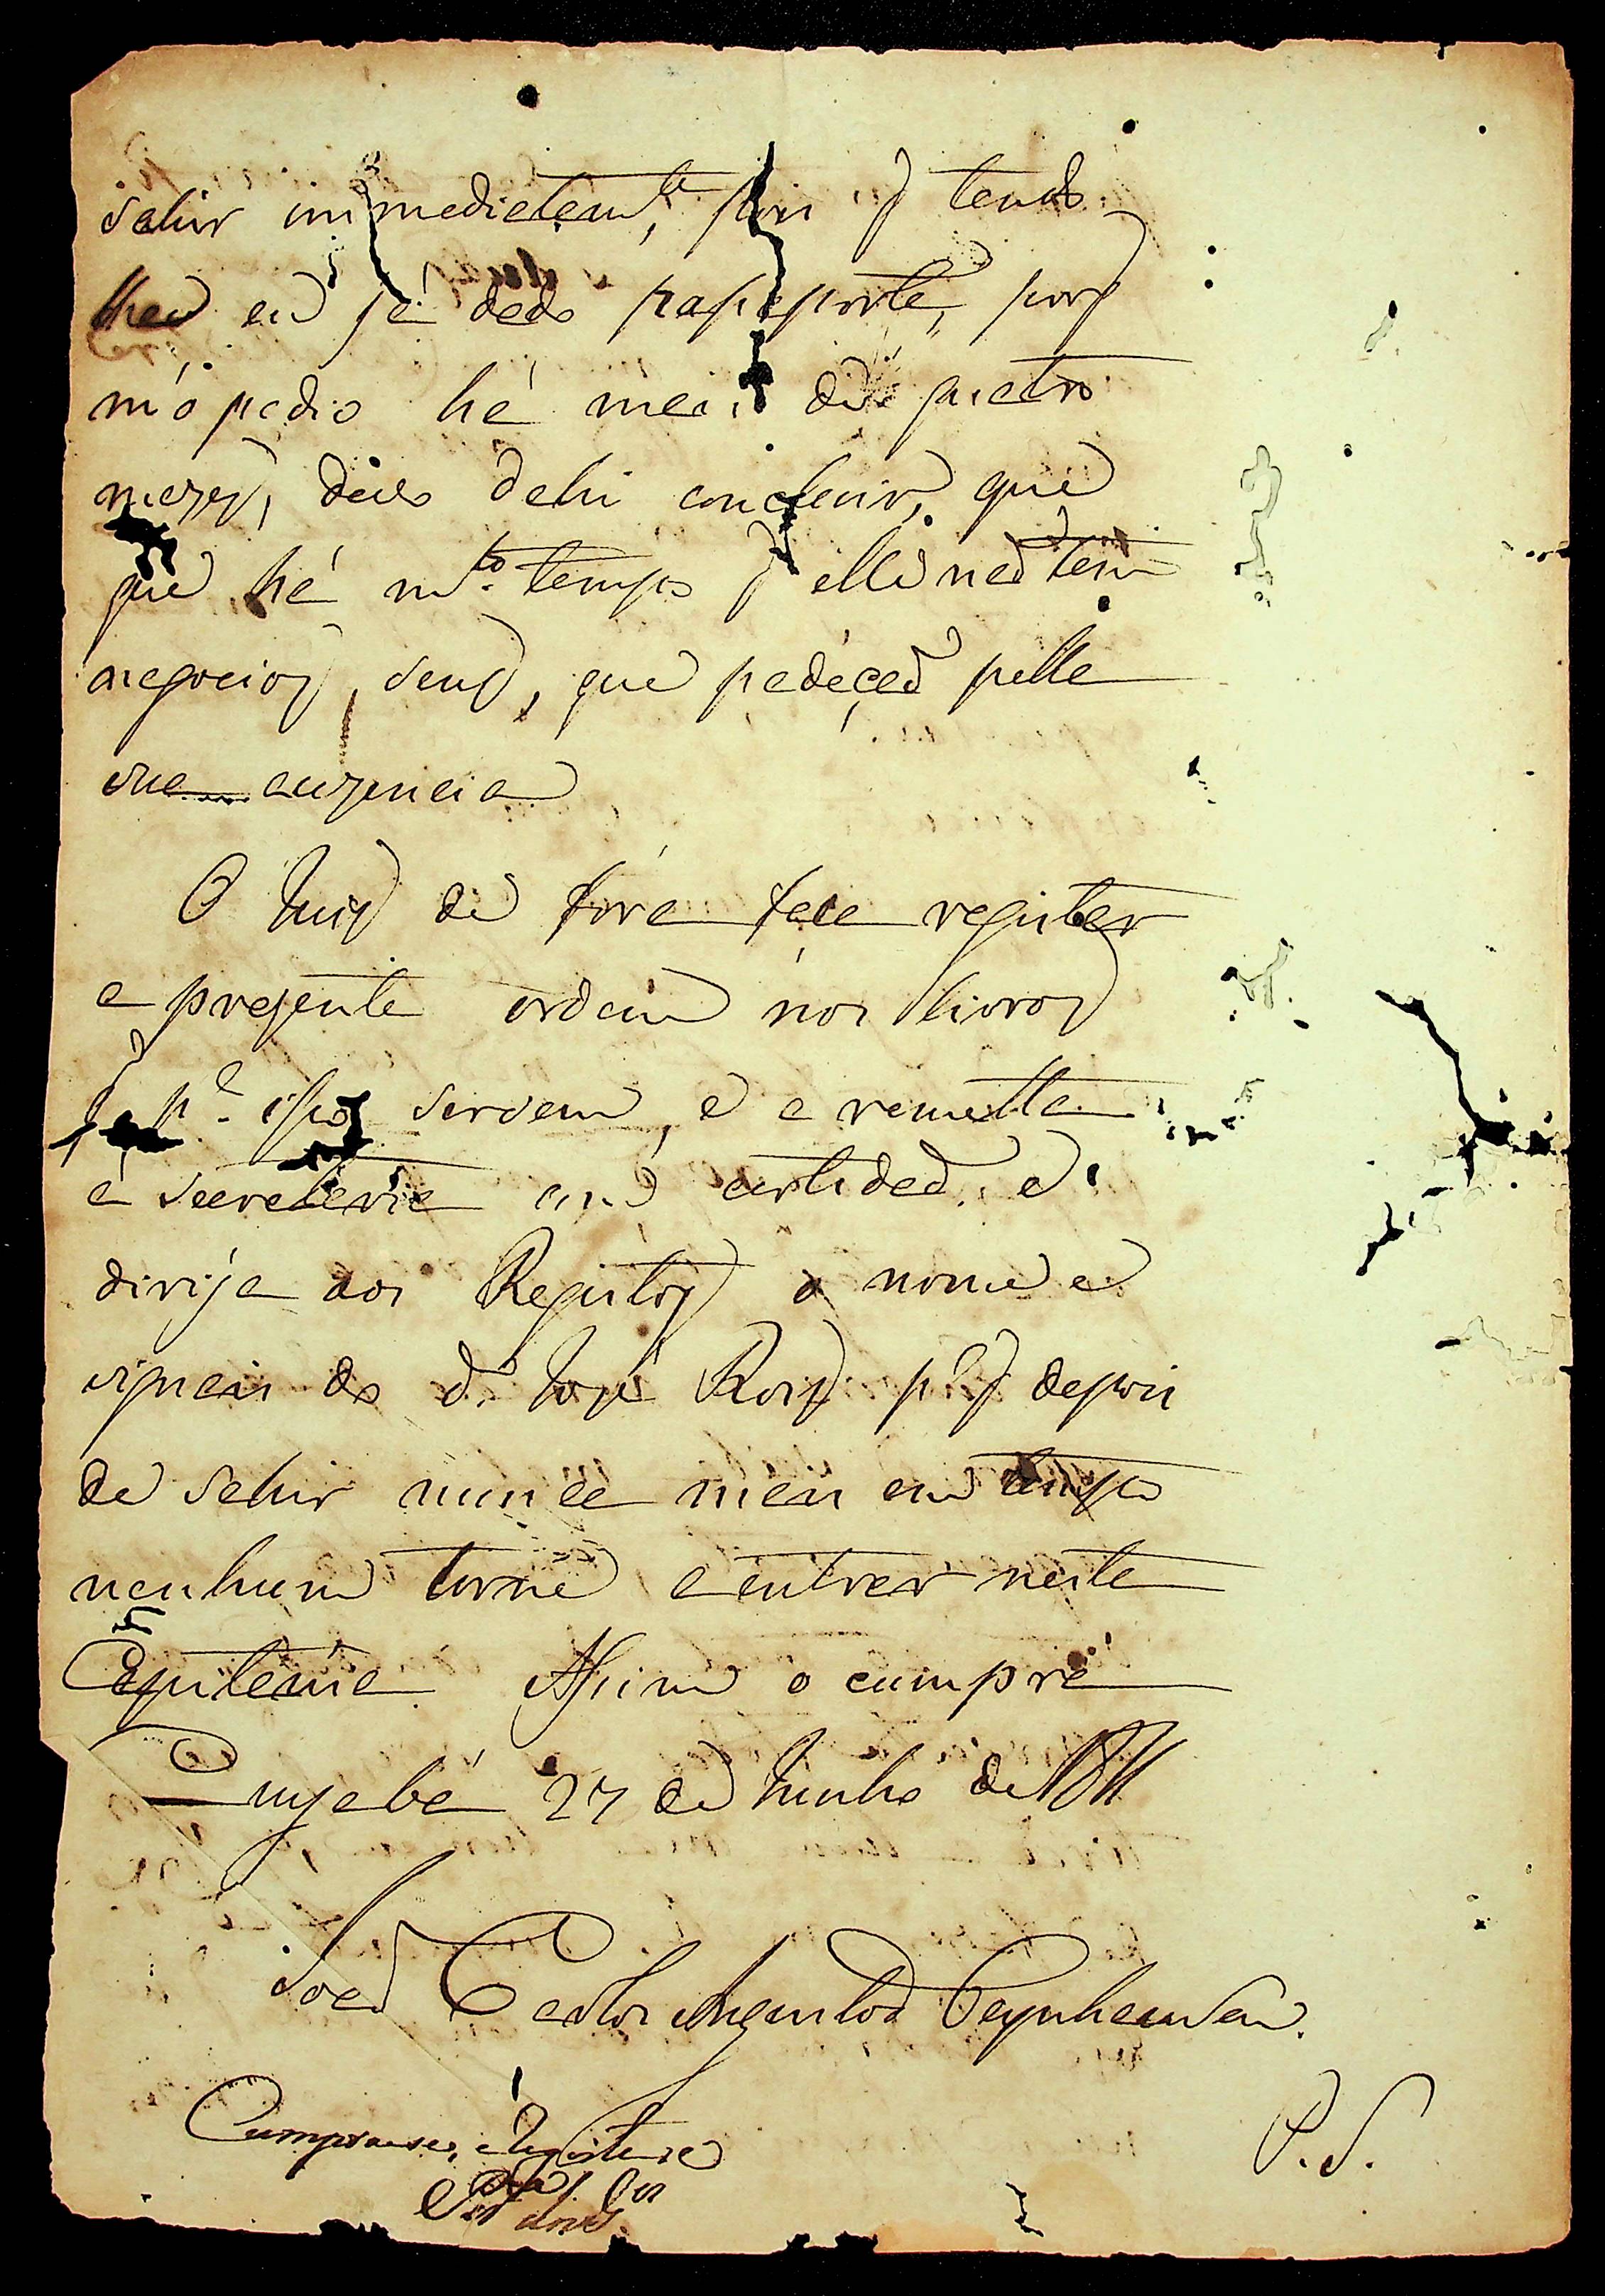 sahir immediatam.te, pois q tendo
lhe eu já dado passaporte, porq
m'o pedio há mais de quatro
mezes, devo dahi concluir, que
que há m.to tempo q elle não tem
negocios seus, que padeção pella
sua auzencia
O Juis de fora faça registar
a prezente ordem nos livros
q p.a isso servem, e a remetta
á Secretaria com certidão, e
dirija aos Registos o nome e
signais do d.o José Rois p.a q depois
de sahir nunca mais em tempo
nenhum torne a entrar nesta
Capitania Assim o cumpra
Cuyabá 27 de Junho de 1811
João Carlos Augusto d'Oeynhausen.
Cumprase, e Registese
P.S.